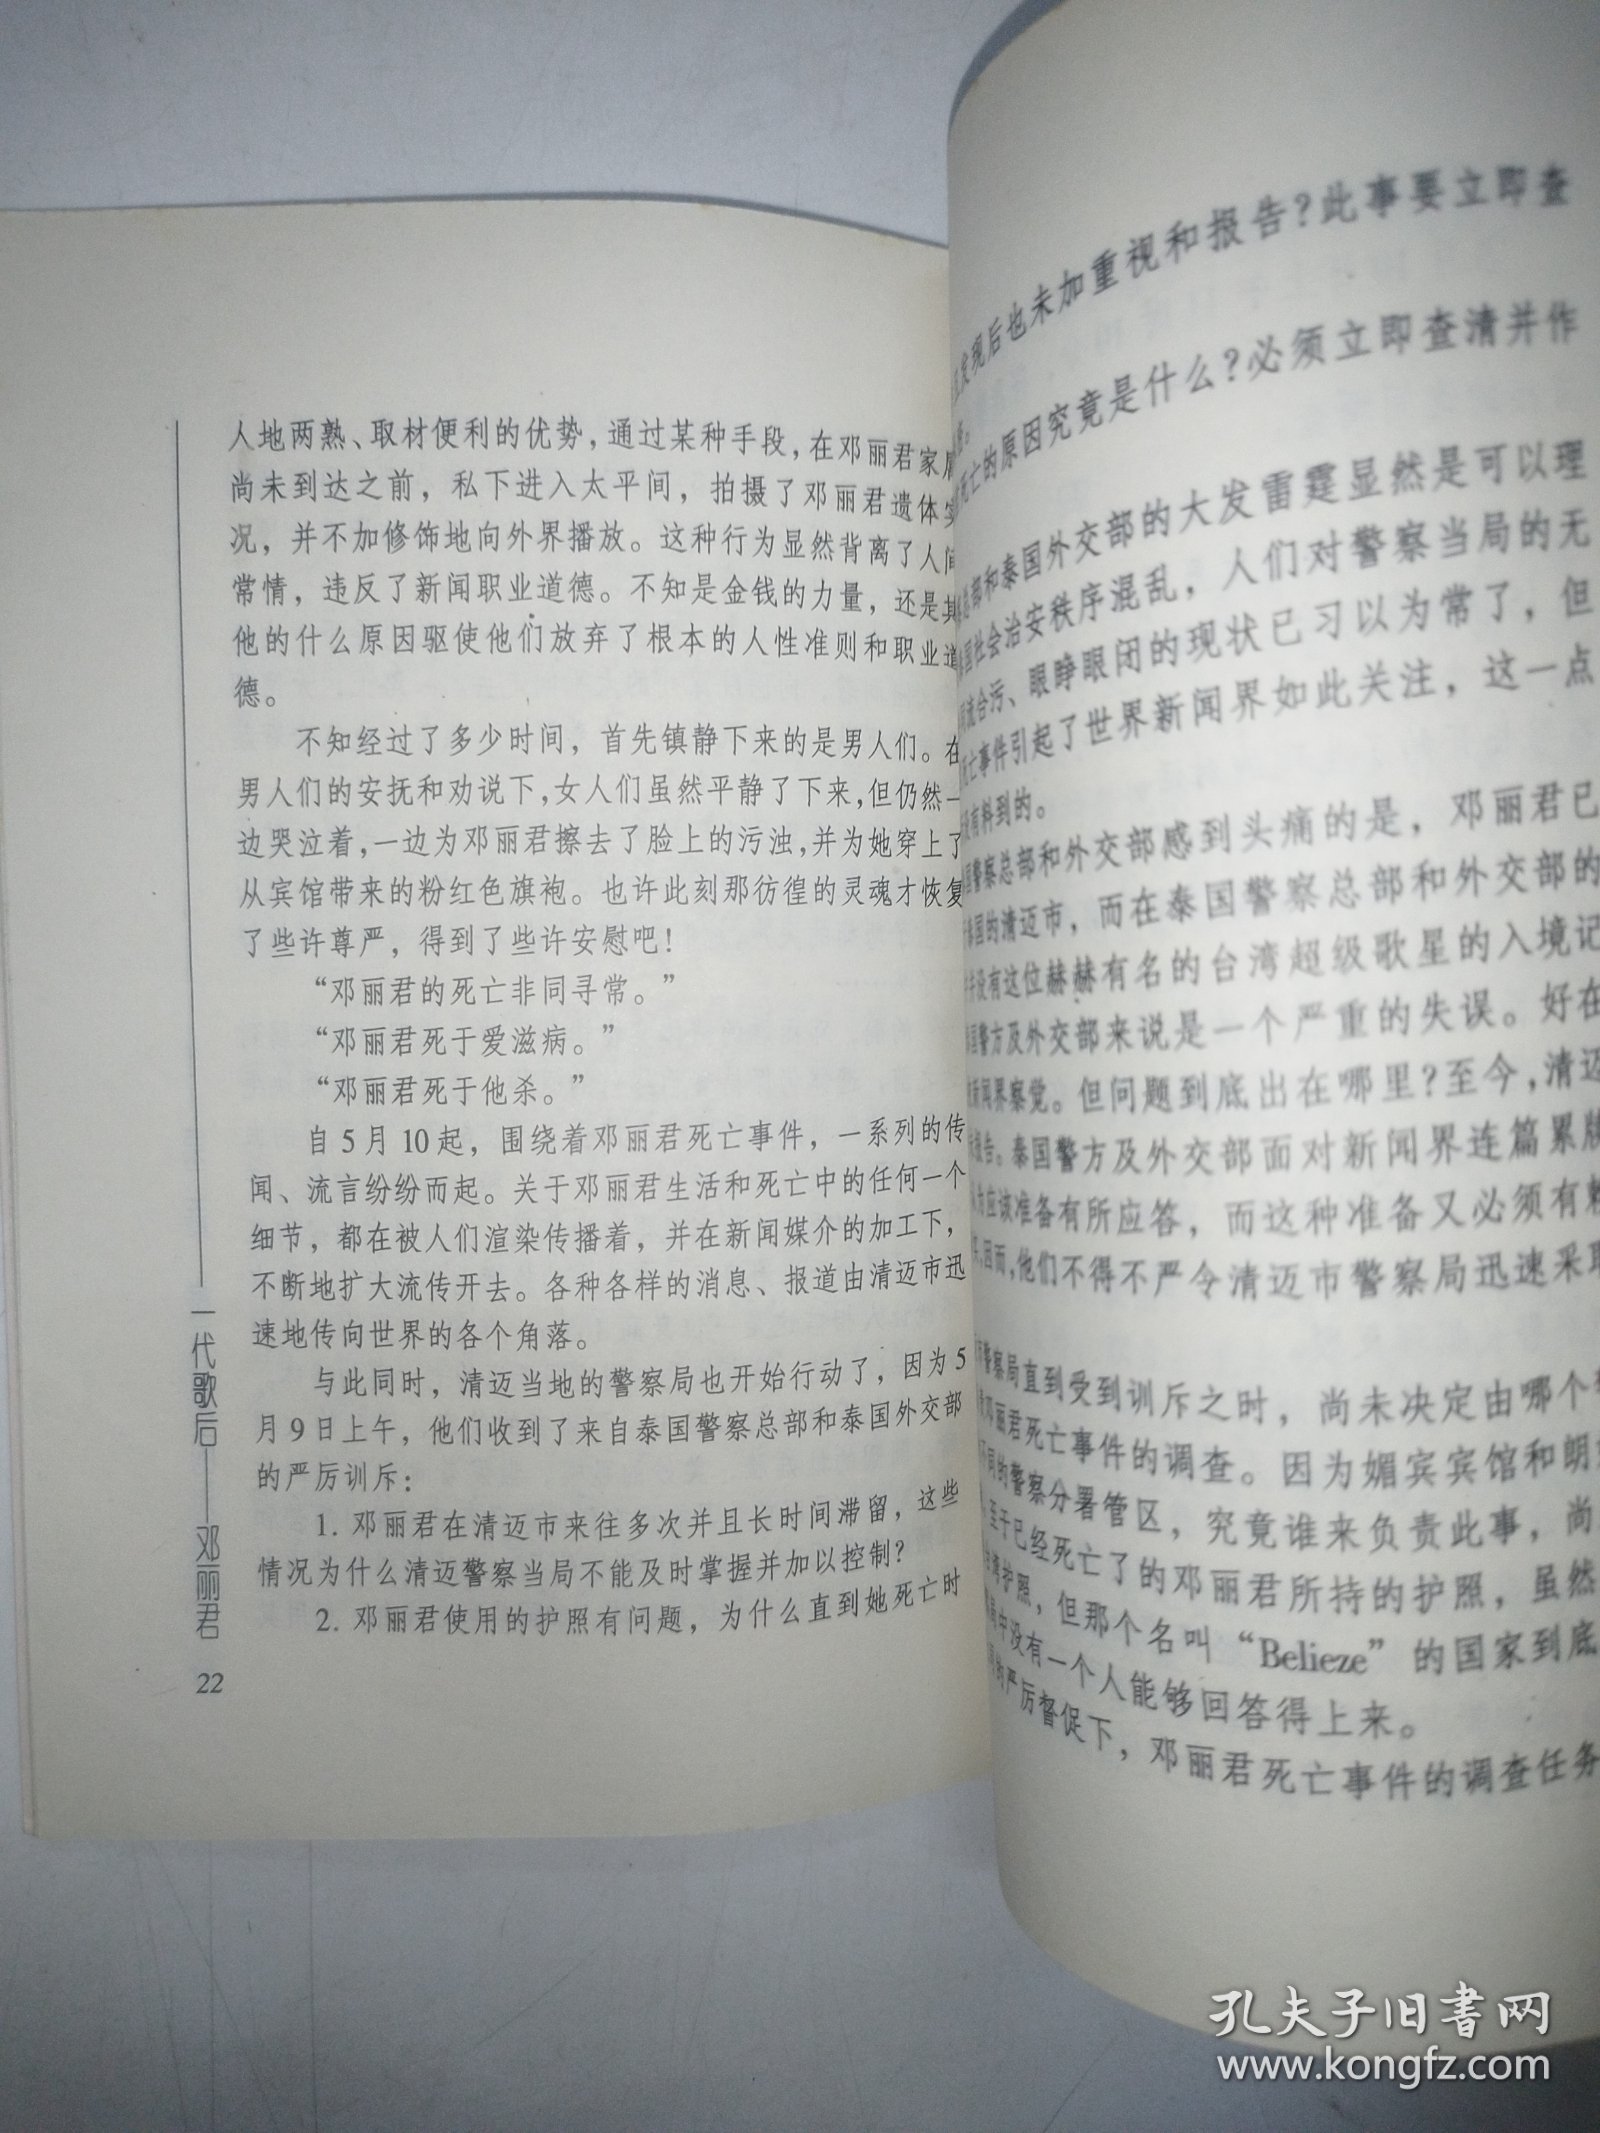 人地两熟、取材便利的优势，通过某种手段，在邓丽君家属
尚未到达之前，私下进入太平间，拍摄了邓丽君遗体实
况，并不加修饰地向外界播放。这种行为显然背离了人间
常情，违反了新闻职业道德。不知是金钱的力量，还是其
他的什么原因驱使他们放弃了根本的人性准则和职业道
德。
不知经过了多少时间，首先镇静下来的是男人们。在
男人们的安抚和劝说下，女人们虽然平静了下来，但仍然一
边哭泣着，一边为邓丽君擦去了脸上的污浊，并为她穿上了
从宾馆带来的粉红色旗袍。也许此刻那彷徨的灵魂才恢复
了些许尊严，得到了些许安慰吧！
“邓丽君的死亡非同寻常。”
“邓丽君死于爱滋病。”
“邓丽君死于他杀。”
自5月10起，围绕着邓丽君死亡事件，一系列的传
闻、流言纷纷而起。关于邓丽君生活和死亡中的任何一个
细节，都在被人们渲染传播着，并在新闻媒介的加工下，
不断地扩大流传开去。各种各样的消息、报道由清迈市迅
速地传向世界的各个角落。
与此同时，清迈当地的警察局也开始行动了，因为5
月9日上午，他们收到了来自泰国警察总部和泰国外交部
的严厉训斥：
1. 邓丽君在清迈市来往多次并且长时间滞留，这些
情况为什么清迈警察当局不能及时掌握并加以控制？
2. 邓丽君使用的护照有问题，为什么直到她死亡时
一代歌后——邓丽君
22
发现后也未加重视和报告？此事要立即查
死亡的原因究竟是什么？必须立即查清并作
部和泰国外交部的大发雷霆显然是可以理
国社会治安秩序混乱，人们对警察当局的无
流合污、眼睁眼闭的现状已习以为常了，但
死亡事件引起了世界新闻界如此关注，这一点
没有料到的。
警察总部和外交部感到头痛的是，邓丽君已
泰国的清迈市，而在泰国警察总部和外交部的
并没有这位赫赫有名的台湾超级歌星的入境记
警方及外交部来说是一个严重的失误。好在
新闻界察觉。但问题到底出在哪里？至今，清迈
报告。泰国警方及外交部面对新闻界连篇累牍
为应该准备有所应答，而这种准备又必须有
因而，他们不得不严令清迈市警察局迅速采取
警察局直到受到训斥之时，尚未决定由哪个
邓丽君死亡事件的调查。因为媚宾宾馆和朗
不同的警察分署管区，究竟谁来负责此事，尚
至于已经死亡了的邓丽君所持的护照，虽然
护照，但那个名叫“Belieze”的国家到底
局中没有一个人能够回答得上来。
的严厉督促下，邓丽君死亡事件的调查任务
孔夫子旧书网
www.kongfz.com